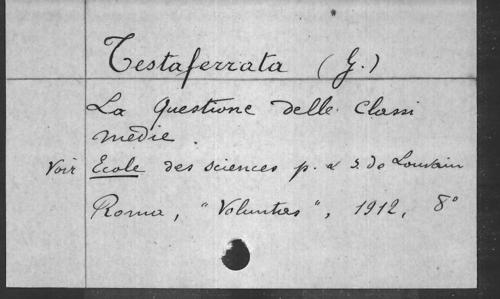 Testaferrata (G.)
La Questione delle Classi
medie.
Voir Ecole des sciences p. & s. de Louvain
Roma, "Voluntas", 1912, 8°